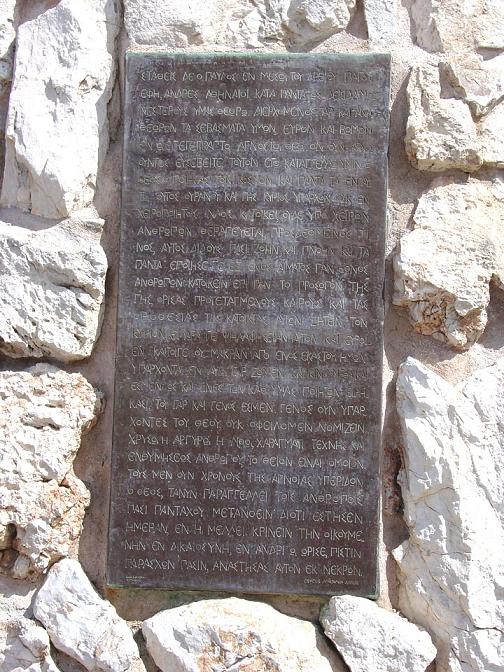 ΣΤΑΘΕΙΣ ΔΕ Ο ΠΑΥΛΟΣ ΕΝ ΜΕΣΩ ΤΟΥ ΑΡΕΙΟΥ ΠΑΓΟΥ
ΕΦΗ, ΑΝΔΡΕΣ ΑΘΗΝΑΙΟΙ ΚΑΤΑ ΠΑΝΤΑ ΩΣ ΔΕΙΣΙΔΑΙΜΟ
ΝΕΣΤΕΡΟΥΣ ΥΜΑΣ ΘΕΩΡΩ. ΔΙΕΡΧΟΜΕΝΟΣ ΓΑΡ ΚΑΙ ΑΝΑ
ΘΕΩΡΩΝ ΤΑ ΣΕΒΑΣΜΑΤΑ ΥΜΩΝ, ΕΥΡΟΝ ΚΑΙ ΒΩΜΟΝ
ΕΝ Ω ΕΠΕΓΕΓΡΑΠΤΟ ΑΓΝΩΣΤΩ ΘΕΩ ΟΝ ΟΥΝ ΑΓΝΟ
ΟΥΝΤΕΣ ΕΥΣΕΒΕΙΤΕ ΤΟΥΤΟΝ ΕΓΩ ΚΑΤΑΓΓΕΛΛΩ ΥΜΙΝ
ΘΕΟΣ Ο ΠΟΙΗΣΑΣ ΤΟΝ ΚΟΣΜΟΝ ΚΑΙ ΠΑΝΤΑ ΤΑ ΕΝ ΑΥΤΩ
ΟΥΤΟΣ ΟΥΡΑΝΟΥ ΚΑΙ ΓΗΣ ΚΥΡΙΟΣ ΥΠΑΡΧΩΝ ΟΥΚ ΕΝ
ΧΕΙΡΟΠΟΙΗΤΟΙΣ ΝΑΟΙΣ ΚΑΤΟΙΚΕΙ ΟΥΔΕ ΥΠΟ ΧΕΙΡΩΝ
ΑΝΘΡΩΠΩΝ ΘΕΡΑΠΕΥΕΤΑΙ ΠΡΟΣΔΕΟΜΕΝΟΣ ΤΙ
ΝΟΣ, ΑΥΤΟΣ ΔΙΔΟΥΣ ΠΑΣΙ ΖΩΗΝ ΚΑΙ ΠΝΟΗΝ ΚΑΙ ΤΑ
ΠΑΝΤΑ ΕΠΟΙΗΣΕ ΤΕ ΕΞ ΕΝΟΣ ΑΙΜΑΤΟΣ ΠΑΝ ΕΘΝΟΣ
ΑΝΘΡΩΠΩΝ ΚΑΤΟΙΚΕΙΝ ΕΠΙ ΠΑΝ ΤΟ ΠΡΟΣΩΠΟΝ ΤΗΣ
ΓΗΣ ΟΡΙΣΑΣ ΠΡΟΤΕΤΑΓΜΕΝΟΥΣ ΚΑΙΡΟΥΣ ΚΑΙ ΤΑΣ
ΟΡΟΘΕΣΙΑΣ ΤΗΣ ΚΑΤΟΙΚΙΑΣ ΑΥΤΩΝ ΖΗΤΕΙΝ ΤΟΝ
ΚΥΡΙΟΝ ΕΙ ΑΡΑ ΓΕ ΨΗΛΑΦΗΣΕΙΑΝ ΑΥΤΟΝ ΚΑΙ ΕΥΡΟΙ
ΕΝ ΚΑΙΤΟΙΓΕ ΟΥ ΜΑΚΡΑΝ ΑΠΟ ΕΝΟΣ ΕΚΑΣΤΟΥ ΗΜΩΝ
ΥΠΑΡΧΟΝΤΑ ΕΝ ΑΥΤΩ ΓΑΡ ΖΩΜΕΝ ΚΑΙ ΚΙΝΟΥΜΕΘΑ ΚΑΙ
ΕΣΜΕΝ ΩΣ ΚΑΙ ΤΙΝΕΣ ΤΩΝ ΚΑΘ ΥΜΑΣ ΠΟΙΗΤΩΝ ΕΙΡΗ
ΚΑΣΙ, ΤΟΥ ΓΑΡ ΚΑΙ ΓΕΝΟΣ ΕΣΜΕΝ. ΓΕΝΟΣ ΟΥΝ ΥΠΑΡ
ΧΟΝΤΕΣ ΤΟΥ ΘΕΟΥ, ΟΥΚ ΟΦΕΙΛΟΜΕΝ ΝΟΜΙΖΕΙΝ
ΧΡΥΣΩ Η ΑΡΓΥΡΩ, Η ΛΙΘΩ, ΧΑΡΑΓΜΑΤΙ ΤΕΧΝΗΣ ΚΑΙ
ΕΝΘΥΜΗΣΕΩΣ ΑΝΘΡΩΠΟΥ, ΤΟ ΘΕΙΟΝ ΕΙΝΑΙ ΟΜΟΙΟΝ
ΤΟΥΣ ΜΕΝ ΟΥΝ ΧΡΟΝΟΥΣ ΤΗΣ ΑΓΝΟΙΑΣ ΥΠΕΡΙΔΩΝ
Ο ΘΕΟΣ, ΤΑΝΥΝ ΠΑΡΑΓΓΕΛΛΕΙ ΤΟΙΣ ΑΝΘΡΩΠΟΙΣ
ΠΑΣΙ ΠΑΝΤΑΧΟΥ ΜΕΤΑΝΟΕΙΝ ΔΙΟΤΙ ΕΣΤΗΣΕΝ
ΗΜΕΡΑΝ, ΕΝ Η ΜΕΛΛΕΙ ΚΡΙΝΕΙΝ ΤΗΝ ΟΙΚΟΥΜΕ
ΝΗΝ ΕΝ ΔΙΚΑΙΟΣΥΝΗ, ΕΝ ΑΝΔΡΙ Ω, ΩΡΙΣΕ, ΠΙΣΤΙΝ
ΠΑΡΑΣΧΩΝ ΠΑΣΙΝ, ΑΝΑΣΤΗΣΑΣ ΑΥΤΟΝ ΕΚ ΝΕΚΡΩΝ.